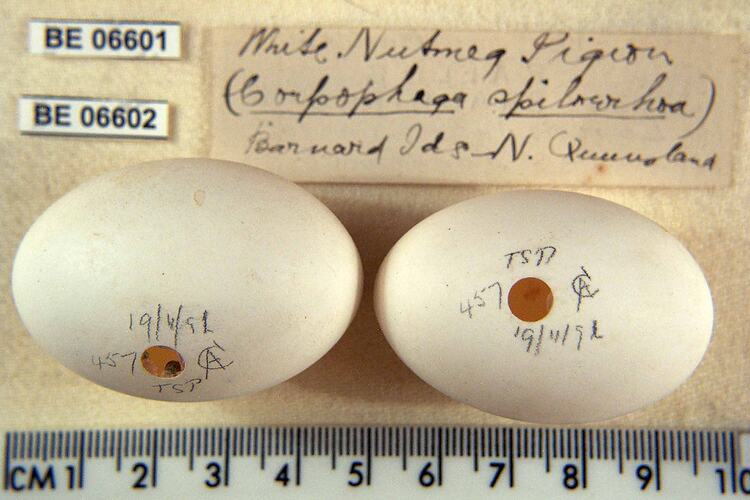 BE 06601
BE 06602
White Nutmeg Pigeon
(Corpophaga spilorrhoa)
Barnard Ids N. Queensland
19/11/92
457
TSP
TSP
457
19/11/92
CM 1 2 3 4 5 6 7 8 9 10